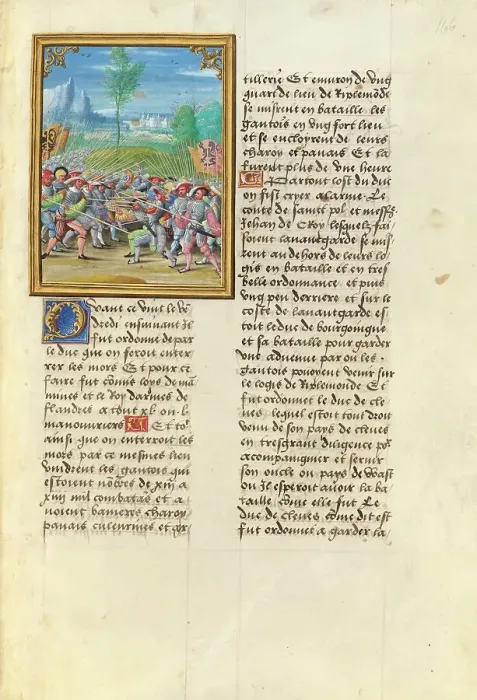 Quant ce vint le vē
dredi ensuiuant Il
fut ordonne de par
le duc que on feroit enter
rer les mors Et pour ce
faire fut cōmis loys de ma
mines et le Roy darmes de
flandres a tout xl. ou .l.
manouuriers Et toꝰ
ainsi que on enterroit les
mors par ce mesmes lieu
vindrent les gantois qui
estoient nōbres de xiij a
xiiij mil combatās et a
uoient banieres charoy
pauais culeurines et ar
tillerie Et enuiron de vng
quart de lieu de Riplemōde
se misrent en bataille les
gantois en vng fort lieu
et se encloyrent de leurs
charoy et pauais Et la
furent plus de vne heure
Partout lost du duc
on fist cryer alarme. Le
conte de sainct pol et messꝰ
Jehan de Croy lesquelz fai
soient lauantgarde se mis
rent au dehors de leurs lo
gis en bataille et en tres
belle ordonnance et puis
vng peu derriere et sur le
coste de lauantgarde es
toit le duc de bourgongne
et sa bataille pour garder
vne aduenue par ou les
gantois pouoyent venir sur
le logis de Riplemonde Et
fut ordonne le duc de cle
ues lequel estoit tout droit
venu de son pays de cleues
en tresgrant diligence por
acompaignier et seruir
son oncle ou pays de wast
ou Il esperoit auoir la ba
taille cōme elle fut Le
duc de cleues cōme dit est
fut ordonnet a garder la